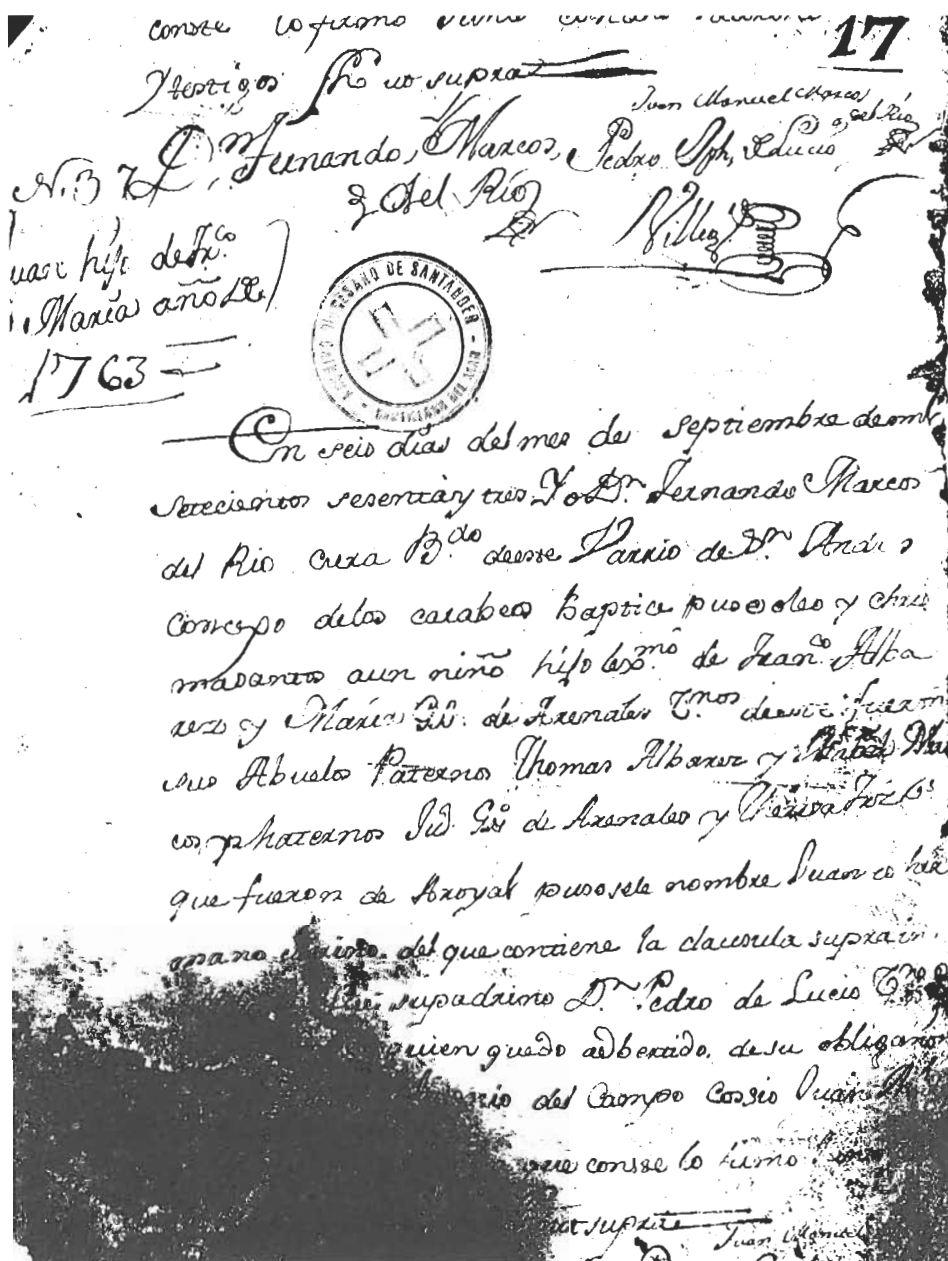 conste lo firmo
Ytestigos fho ut supra
17
Juan Manuel Marcos
del Rio
Dn. Fernando, Marcos, Pedro Jph, de Lucio
y del Rio
Villegas
N. 3
Juan hijo de Franco
Maria año de
1763
DE SANTANDER
En seis dias del mes de septiembre de mil
setecientos sesenta y tres Yo Dn. Fernando Marcos
del Rio cura B.do de este Varrio de Sn Andrs
Concejo de los carabeos baptice puse oleo y chris
ma santos a un niño hijo lexmo. de Franco. Alba
rez y Maria Gu. de Arenales Vnos de este: fueron
sus Abuelos Paternos Thomas Albarez y
cos y Maternos Gu. de Arenales y
que fueron de Aroyal pusosele nombre Juan es her
mano del que contiene la clausula supra
su padrino Dn. Pedro de Lucio Vno
quien quedo adbertido de su obligazon
del Campo Cossio Juan
que conste lo firmo
ut supra
Juan Manuel